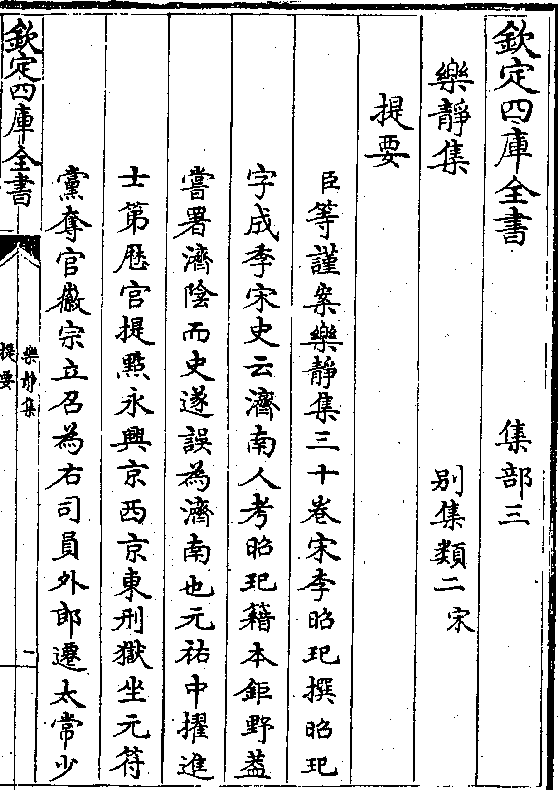 欽定四庫全書　　　集部三
樂靜集　　　　　　別集類二宋
提要
臣等謹案樂靜集三十卷宋李昭玘撰昭玘
字成季宋史云濟南人考昭玘籍本鉅野葢
嘗署濟陰而史遂誤為濟南也元祐中擢進
士第歴官提㸃永興京西京東刑獄坐元符
黨奪官徽宗立召為右司員外郎遷太常少
欽定四庫全書
樂靜集
提要
一